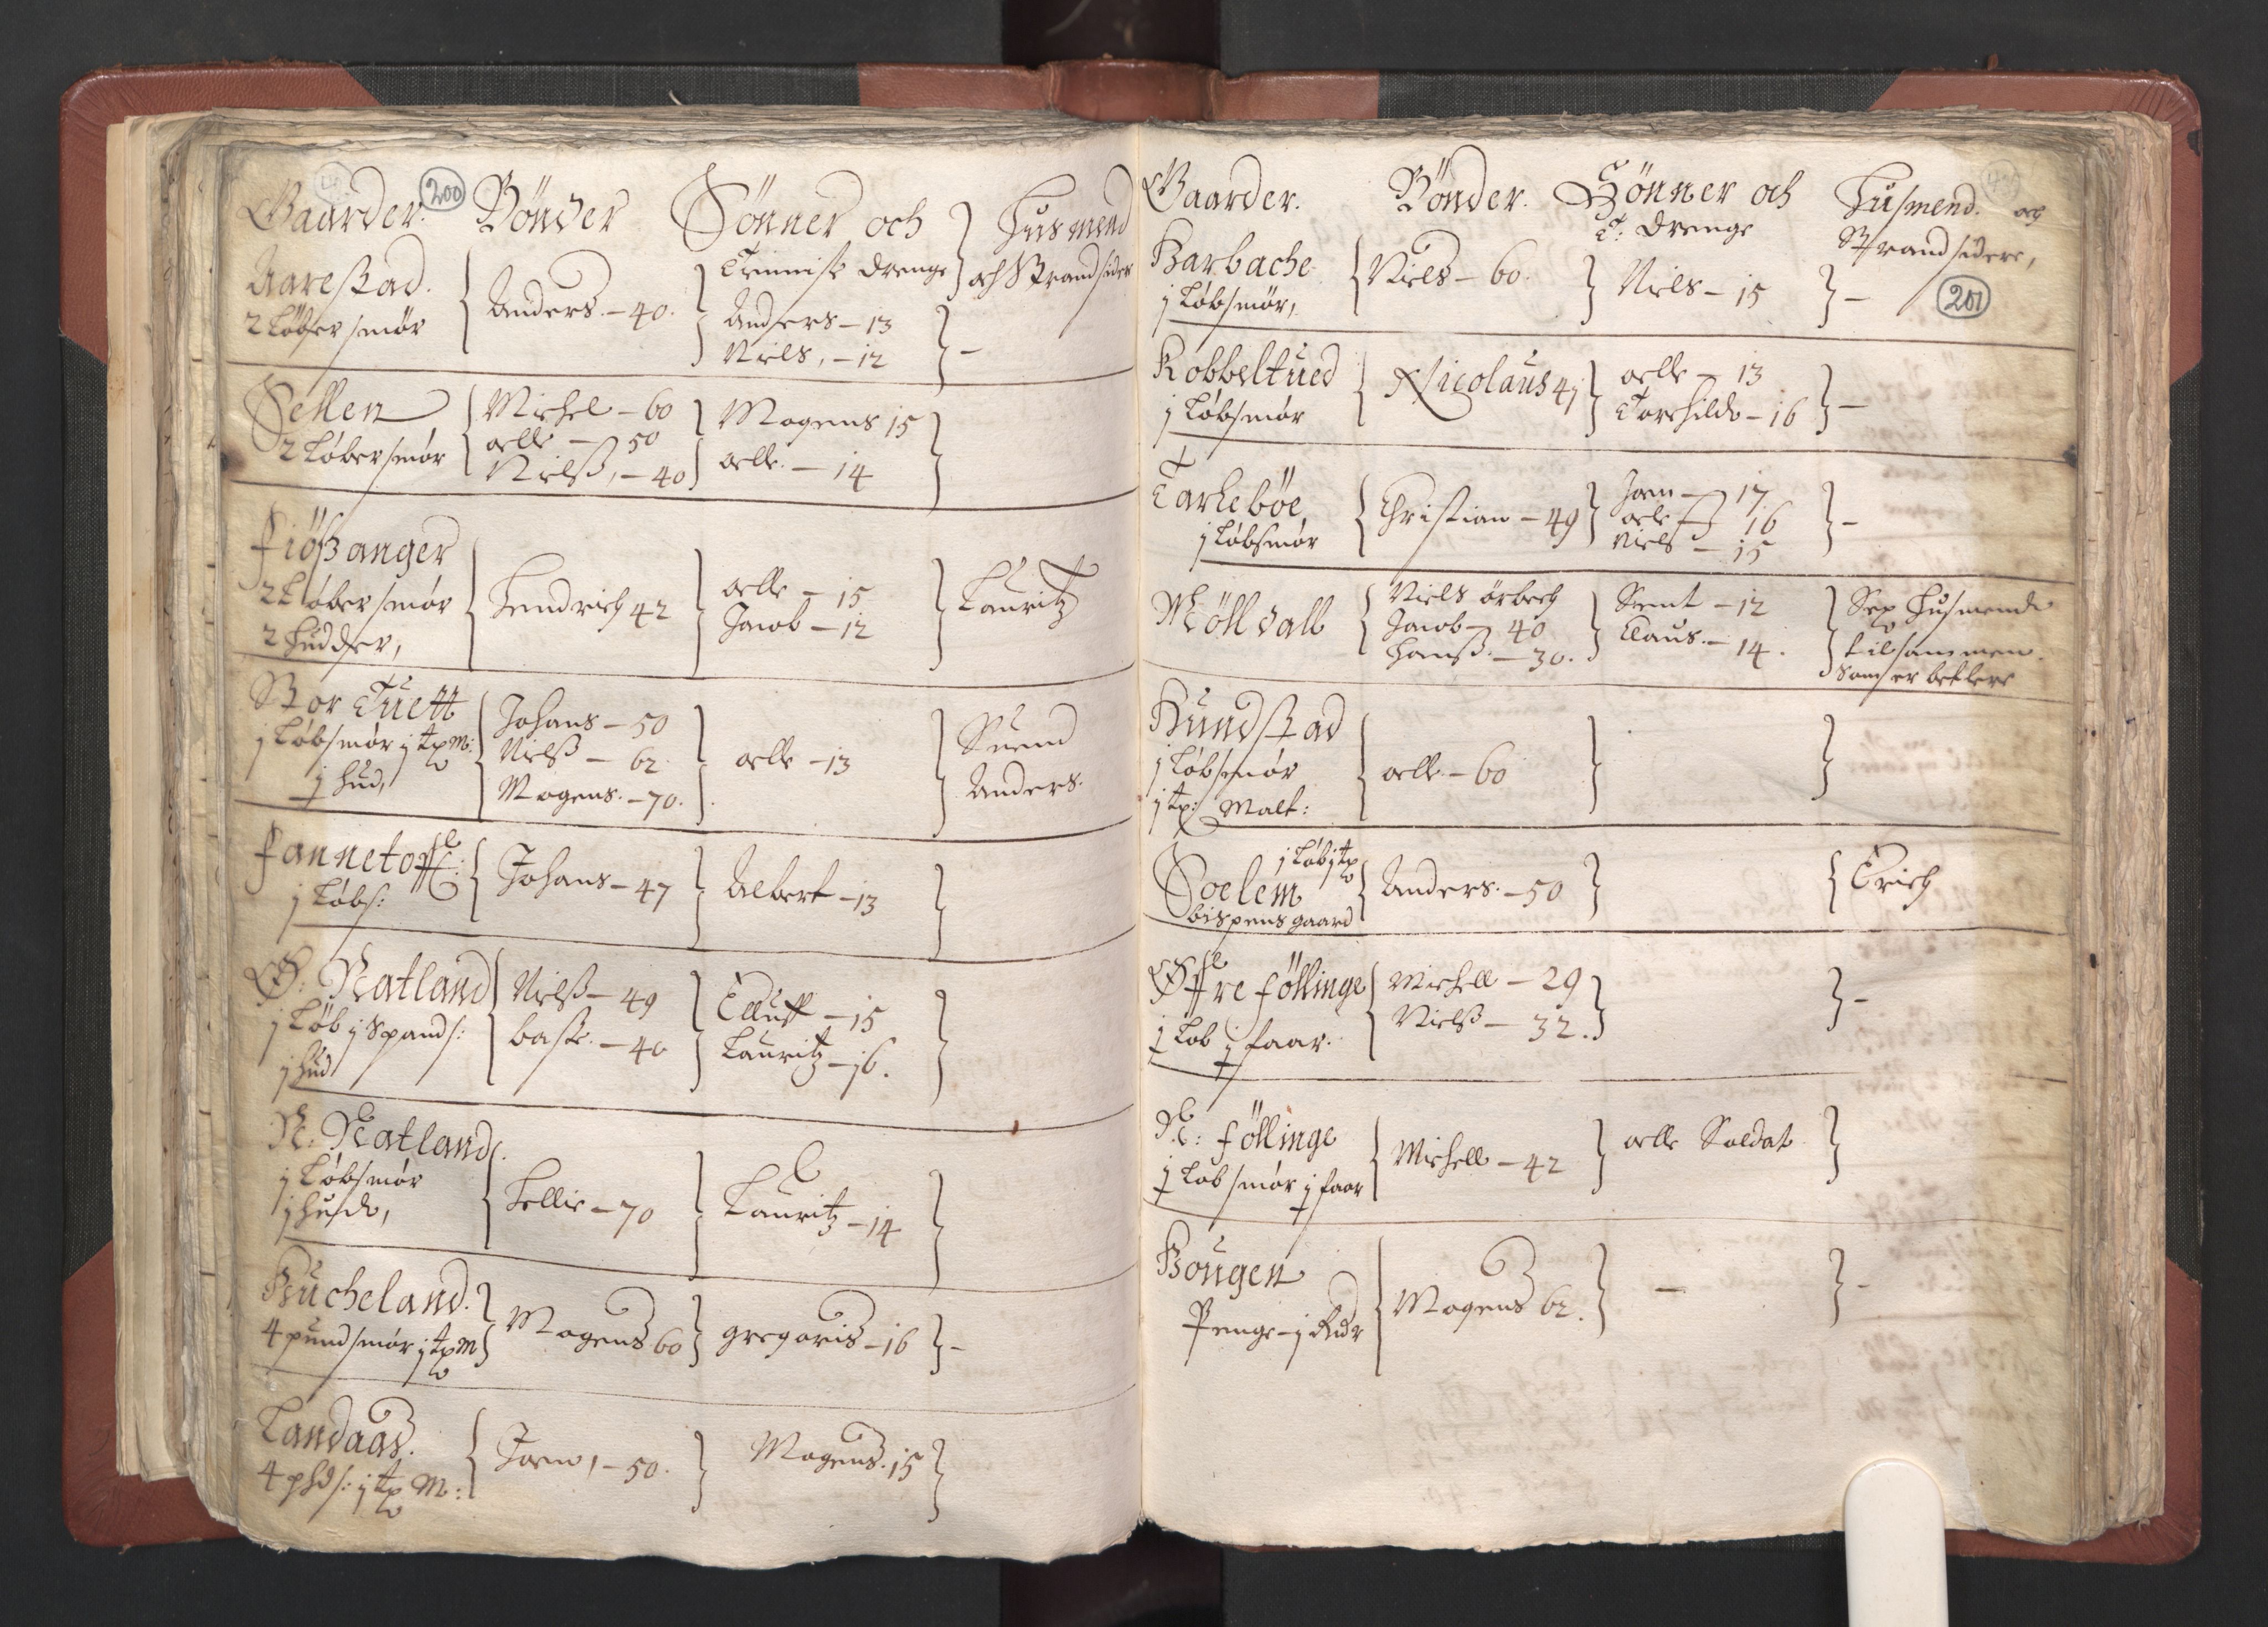 200
Gaarder. Bönder Sönner och Husmend
Tienniste drenge och Strandsider
Aarestad.
2 Løber smör
Anders. – 40.
Anders – 13
Niels, – 12
–
Sellen
2 Løber smør
Michel – 60
oelle – 50
Nielß, – 40
Mogens 15
oelle. – 14
Fiößanger
2 Løber smør
2 Hudder,
Hendrich 42
oelle – 15
Jacob – 12
Lauritz
Stor Tuett
j Løbsmør j tp M:
j Hud,
Johans – 50
Nielß – 62
Mogens. – 70.
oelle – 13
Suend
Anders.
Fannetofft:
j Løbs:
Johans – 47
Albert – 13
Ø: Natland
j Løb j Spands:
j Hud
Nielß – 49
baste. – 40
Elluff – 15
Lauritz – j6.
N: Natland.
j Løbsmør
j Hude,
Hellie – 70
Lauritz – 14
Bucheland.
4 pund smør j tp M
Mogens 60
gregoris – 16
–
Landaas.
4 phds: j tp M:
Joen, – 50.
Mogens. 15
Gaarder. Bönder. Sönner och Husmend. och
T: drenge Strandsidere,
201
Barbache
j Løbsmör,
Niels – 60.
Niels – 15
–
Kobbeltued
j Løbsmør
Nicolaus 41
oelle – 13
Torchilde – 16
–
Tarlebøe
j Løbsmør
Christian – 49
Joen – 17
oele – 16
Niels – 15
–
Mölldall
Niels örbech
Jacob – 40
Hanß. – 30.
Bent – 12
Claus. – 14.
Sex Husmende
tilsammen.
som er betlere
Bundstad
j Løbsmør
j tp: Malt:
oelle. – 60
j Løb j tp
Soelem
bispens gaard
Anders. – 50
Erich
Øffre föllinge
j Løb j faar.
Michell – 29
Nielß – 32.
–
N: föllinge
j Løbsmør j faar
Michell – 42
oelle Soldat
Bougen
Penge – j Rdr
Mogens 62.
–
–